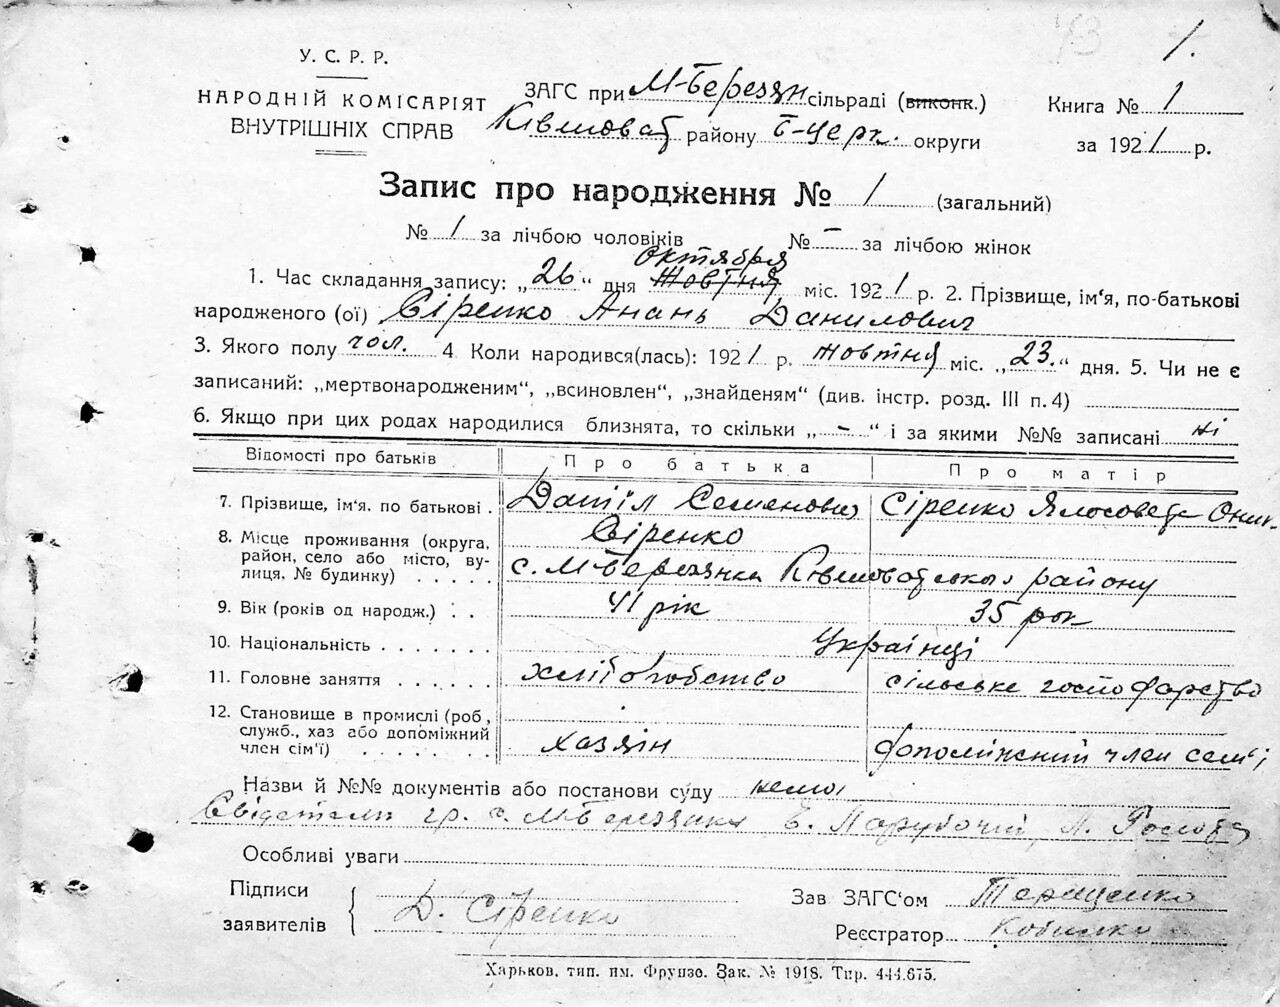 43
1.
У. С. Р. Р.
НАРОДНІЙ КОМІСАРІЯТ
ВНУТРІШНІХ СПРАВ
ЗАГС при М-Березян сільраді (виконк.)
Ківшоват району Б-Церк. округи
Книга № 1
за 1921 р.
Запис про народження № 1 (загальний)
№ 1 за лічбою чоловіків № – за лічбою жінок
Октября
1. Час складання запису: „26“ дня Жовтня міс. 1921 р. 2. Прізвище, ім‘я, по-батькові
народженого (ої) Сіренко Анань Данилович
3. Якого полу чол. 4 Коли народився(лась): 1921 р. Жовтня міс. „23.“ дня. 5. Чи не є
записаний: „мертвонародженим“, „всиновлен“, „знайденям“ (див. інстр. розд. III п. 4)
6. Якщо при цих родах народилися близнята, то скільки „–“ і за якими №№ записані ні
Відомості про батьків Про батька Про матір
7. Прізвище, ім‘я. по батькові . Данііл Семенович Сіренко Сіренко Ялосовета Оник.
8. Місце проживання (округа, район, село або місто, вулиця, № будинку) . . . . . с. М-Березянка Ківшоватського району
9. Вік (років од народж.) . . 41 рік 35 рок
10. Національність . . . . . . . Українці
11. Головне заняття . . . . . . хліборобство сільське господарство
12. Становище в промислі (роб, служб., хаз або допоміжний член сім‘ї) . . . . . . . хазяін допоміжний член семʼі
Назви й №№ документів або постанови суду немаі
Свідетели гр. с. М-Березянка Парубочий, Л.
Особливі уваги
Підписи
заявителів
Д. Сіренко
Зав ЗАГС‘ом Терещенко
Реєстратор
Харьков, тип. им. Фрунзе. Зак. № 1918. Тир. 444.675.